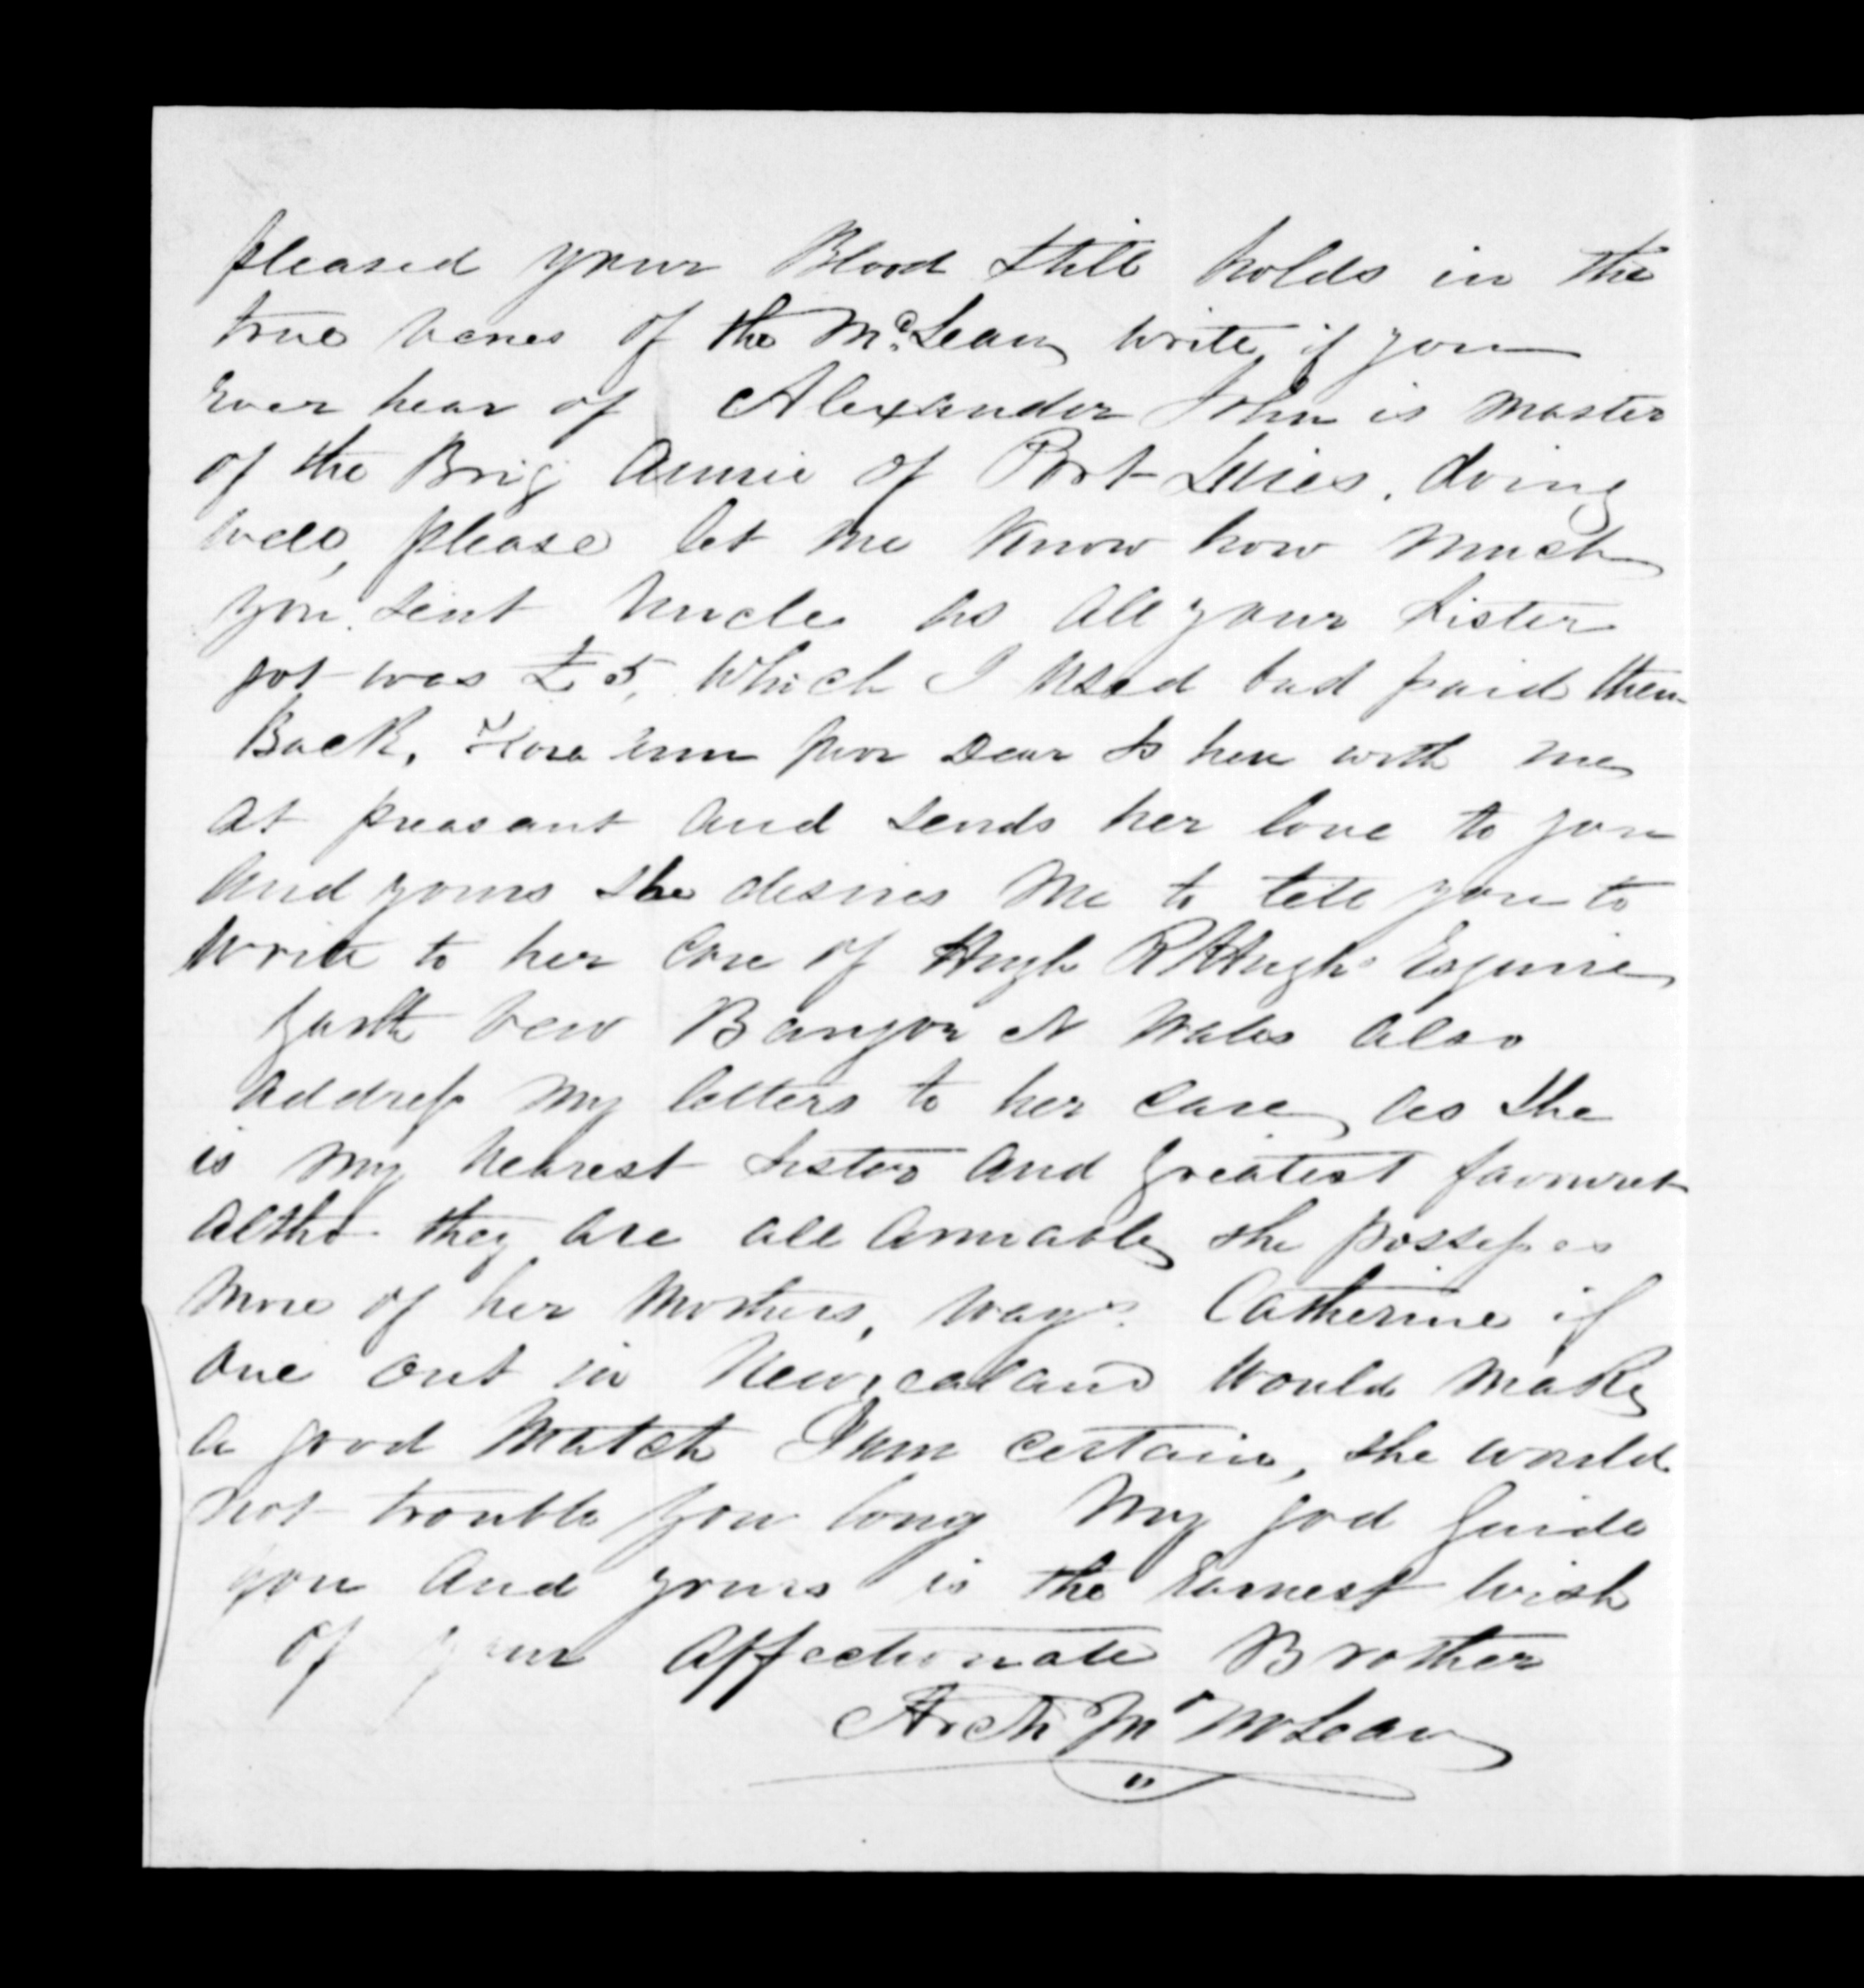 pleased your Blood still holds in the
true vanes of the McLean, write, if you
ever hear of Alexander John is master
of the Brig Annie of Port Luies. doing
well, please let me know how much
you sent Uncle as all your Sister
got was £5, which I used but paid them
Back, Flora Ann poor Dear Is here with me
at preasant and sends her love to you
and yours she desires me to tell you to
write to her Care of Hugh R Hugh's Esquire
Garth View Bangor N Wales also
address my letters to her care, as she
is my nearest sister and greatest favouret
altho they are all amiable she possesses
more of her Mothers, ways. Catherine if
one out in New zealand would make
a good match I am certain, she would
not trouble you long My god Guide
you and yours is the Earnest wish
of your affectionate Brother
Arch Mr McLean